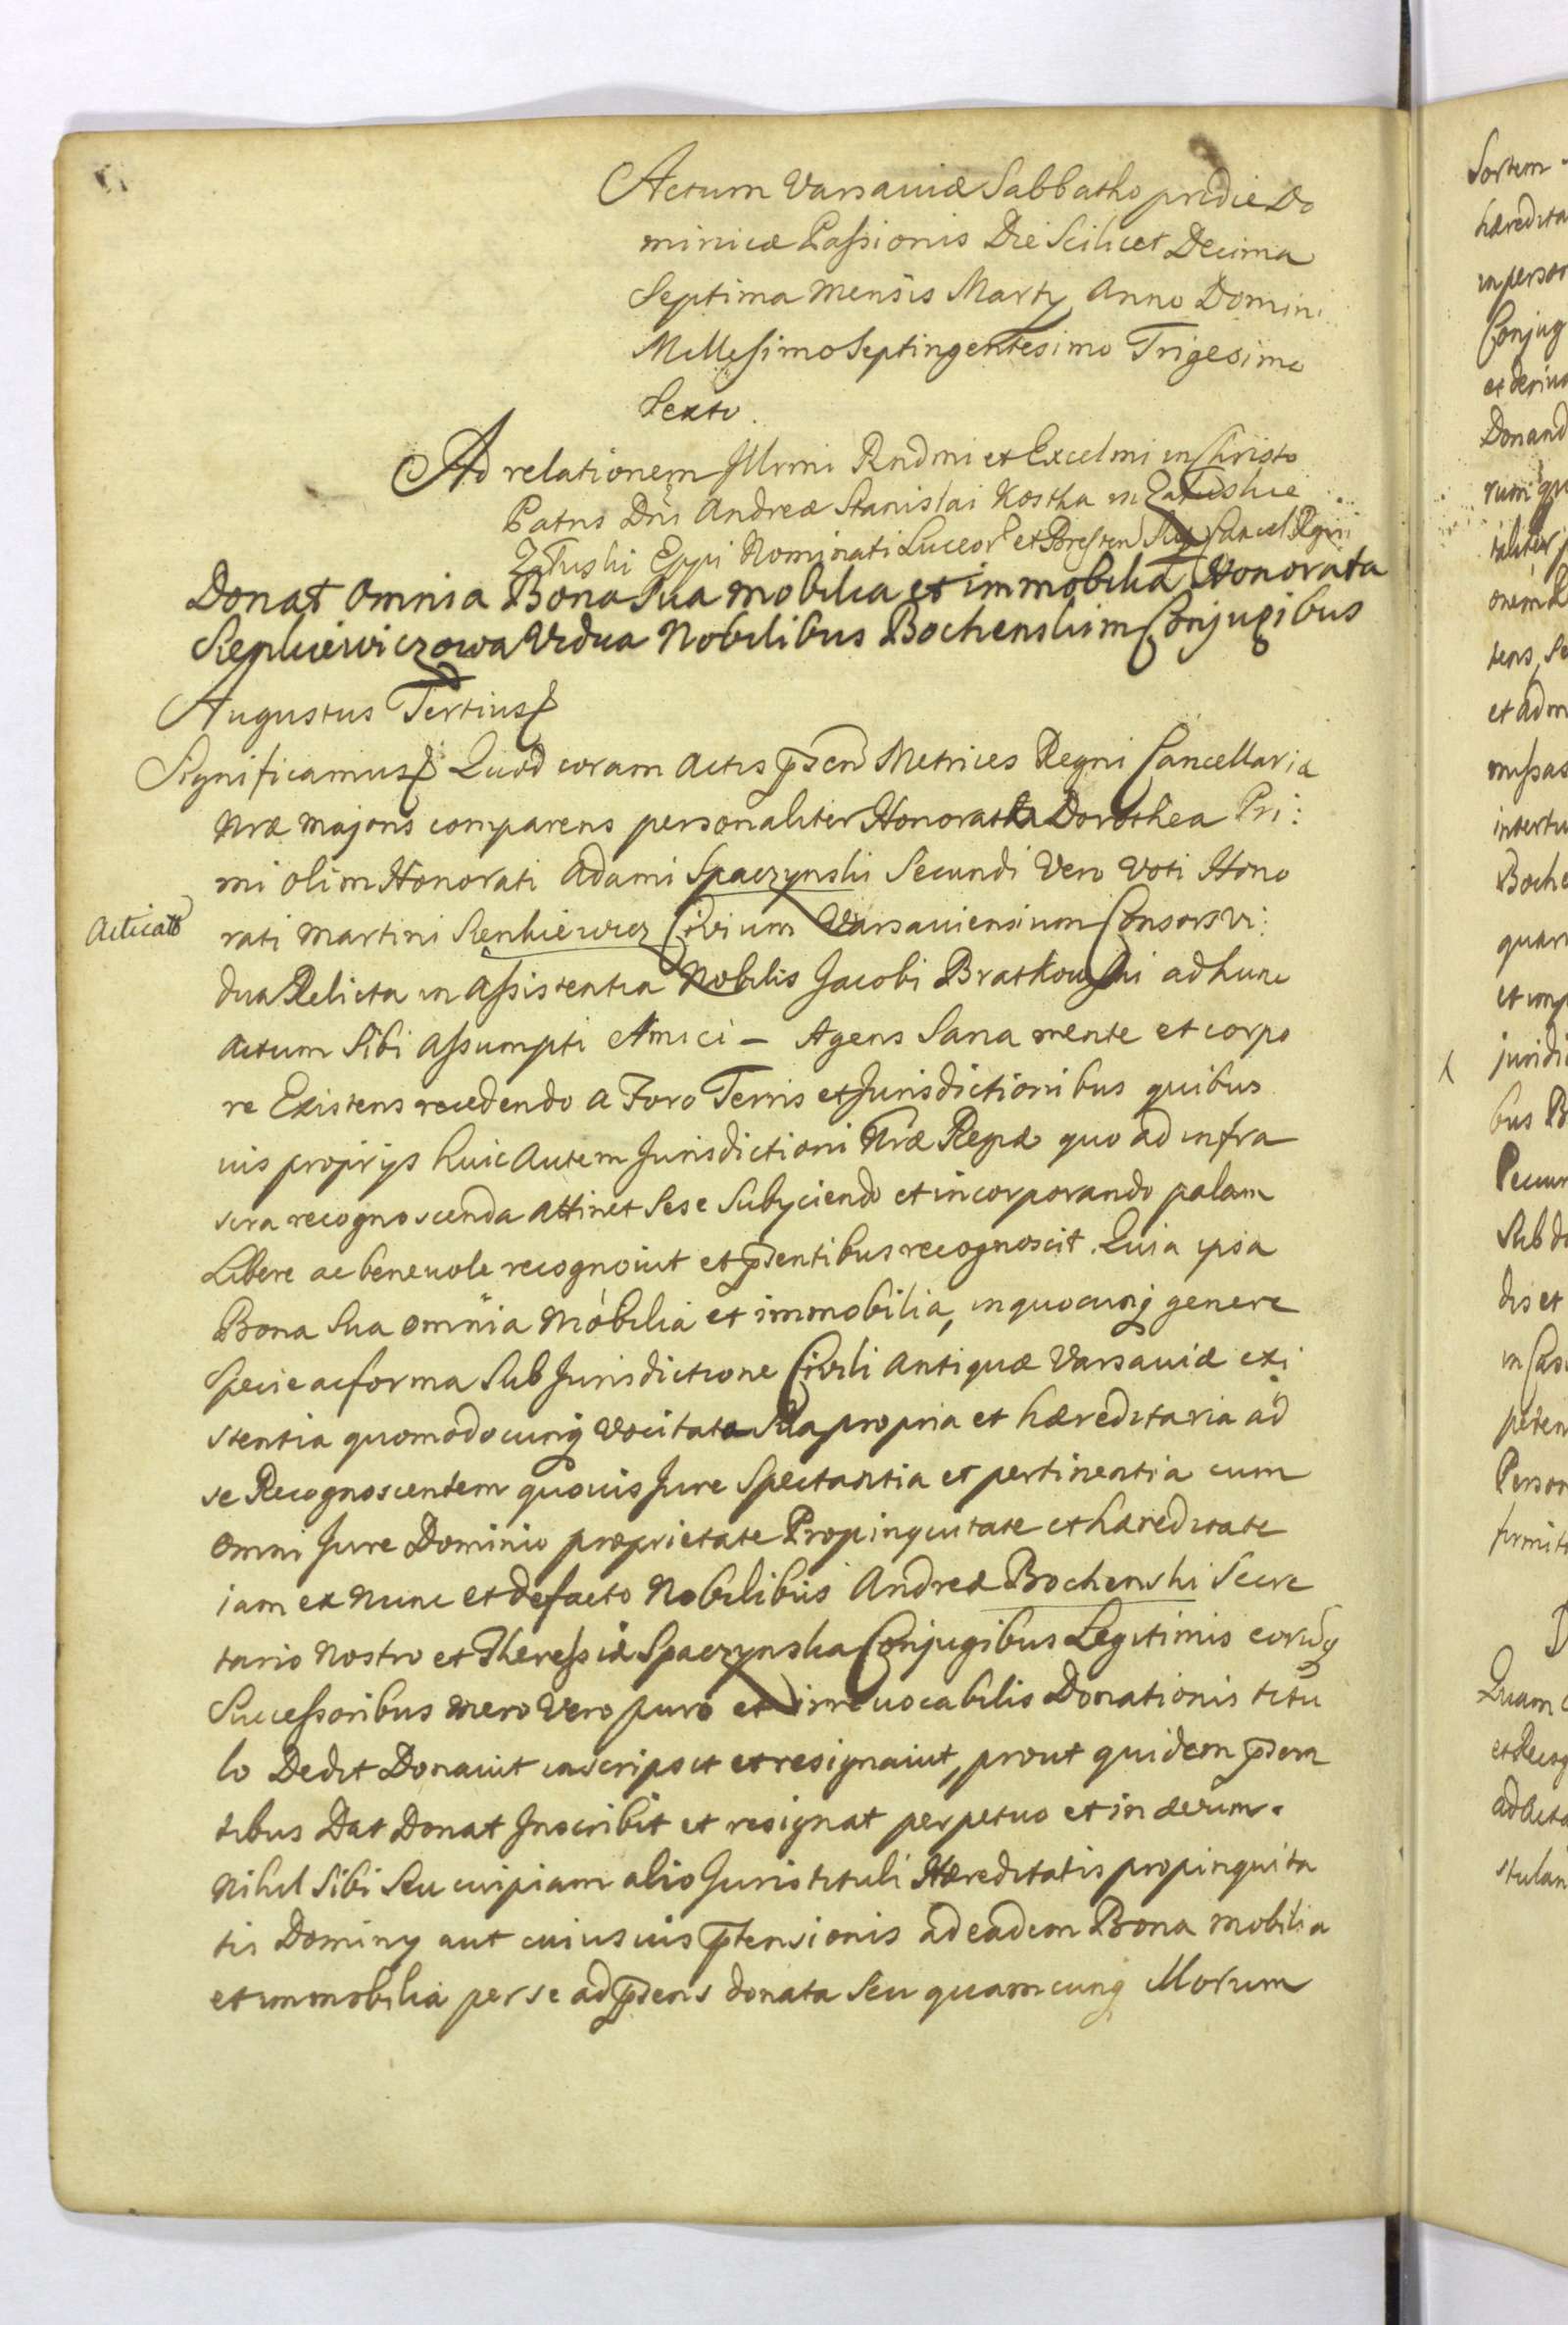 Actum Varsaviæ Sabbatho pridie Do
minicæ Passionis Die Scilicet Decima
Septima Mensis Martÿ Anno Domini
Millesimo Septingentesimo Trigesimo
Sexto.
Ad relationem Illrmi Rndmi et Excelmi in Christo
Patris Dni Andreæ Stanislai Kostka in Załuskie
Załuski Eppi Nominati Luceor et Bresten Sup Cancel Regni
Donat Omnia Bona Sua mobilia et immobilia Honorata
Renkiewiczowa Vidua Nobilibus Bochenskim Conjugibus
Augustus Tertius
Significamus Quod coram Actis psen Metrices Regni Cancellariæ
Nræ majoris comparens personaliter Honorata Dorothea Pri:
mi olim Honorati Adami Spaczynski Secundi Vero Voti Hono
Acticat
rati Martini Renkiewicz Civium Varsaviensium Consors Vi:
dua Relicta in Assistentia Nobilis Jacobi Bratkowski ad hunc
Actum Sibi Assumpti Amici – Agens Sana mente et corpo
re Existens recedendo a Foro Terris et Jurisdictionibus quibus
uis proprÿs huic Autem Jurisdictioni Nræ Regiæ quo ad infra
scra recognoscenda attinet Sese Subÿciendo et incorporando palam
Libere ac beneuole recognouit et psentibus recognoscit. Quia ipsa
Bona Sua omnia Mobilia et immobilia, in quocunq genere
Specie ac forma Sub Jurisdictione Civili Antiquæ Varsaviæ exi
stentia quomodocunq Vocitata Sua propria et hæreditaria ad
se Recognoscentem quouis Jure Spectantia et pertinentia cum
Omni Jure Dominio proprietate Propinquitate et hæreditate
iam ex Nunc et de facto Nobilibus Andreæ Bochenski Secre
tario Nostro et Theressiæ Spaczynska Conjugibus Legitimis eorūq
Successoribus mero Vero puro et irreuocabilis Donationis titu
lo Dedit Donauit inscripsit et resignauit, prout quidem psen
tibus Dat Donat Inscribit et resignat perpetuo et in æuum.
Nihil Sibi Seu cuipiam alio Juris tituli Hæreditatis propinquita
tis Dominÿ aut cuiusuis ptensionis ad eadem Bona mobilia
et immobilia per se ad psens donata Seu quamcunq Illorum
Sortem
hæredita
in person
Conjug
et deriua
Donand
rum qu
taliter p
tens, Se
et adm
missas
Boche
quam
et imp
juridic
bus B
Pecun
Sub d
dis et
in Cas
peten
Person
firmit
Quam
et Recog
ad Acta
stulan